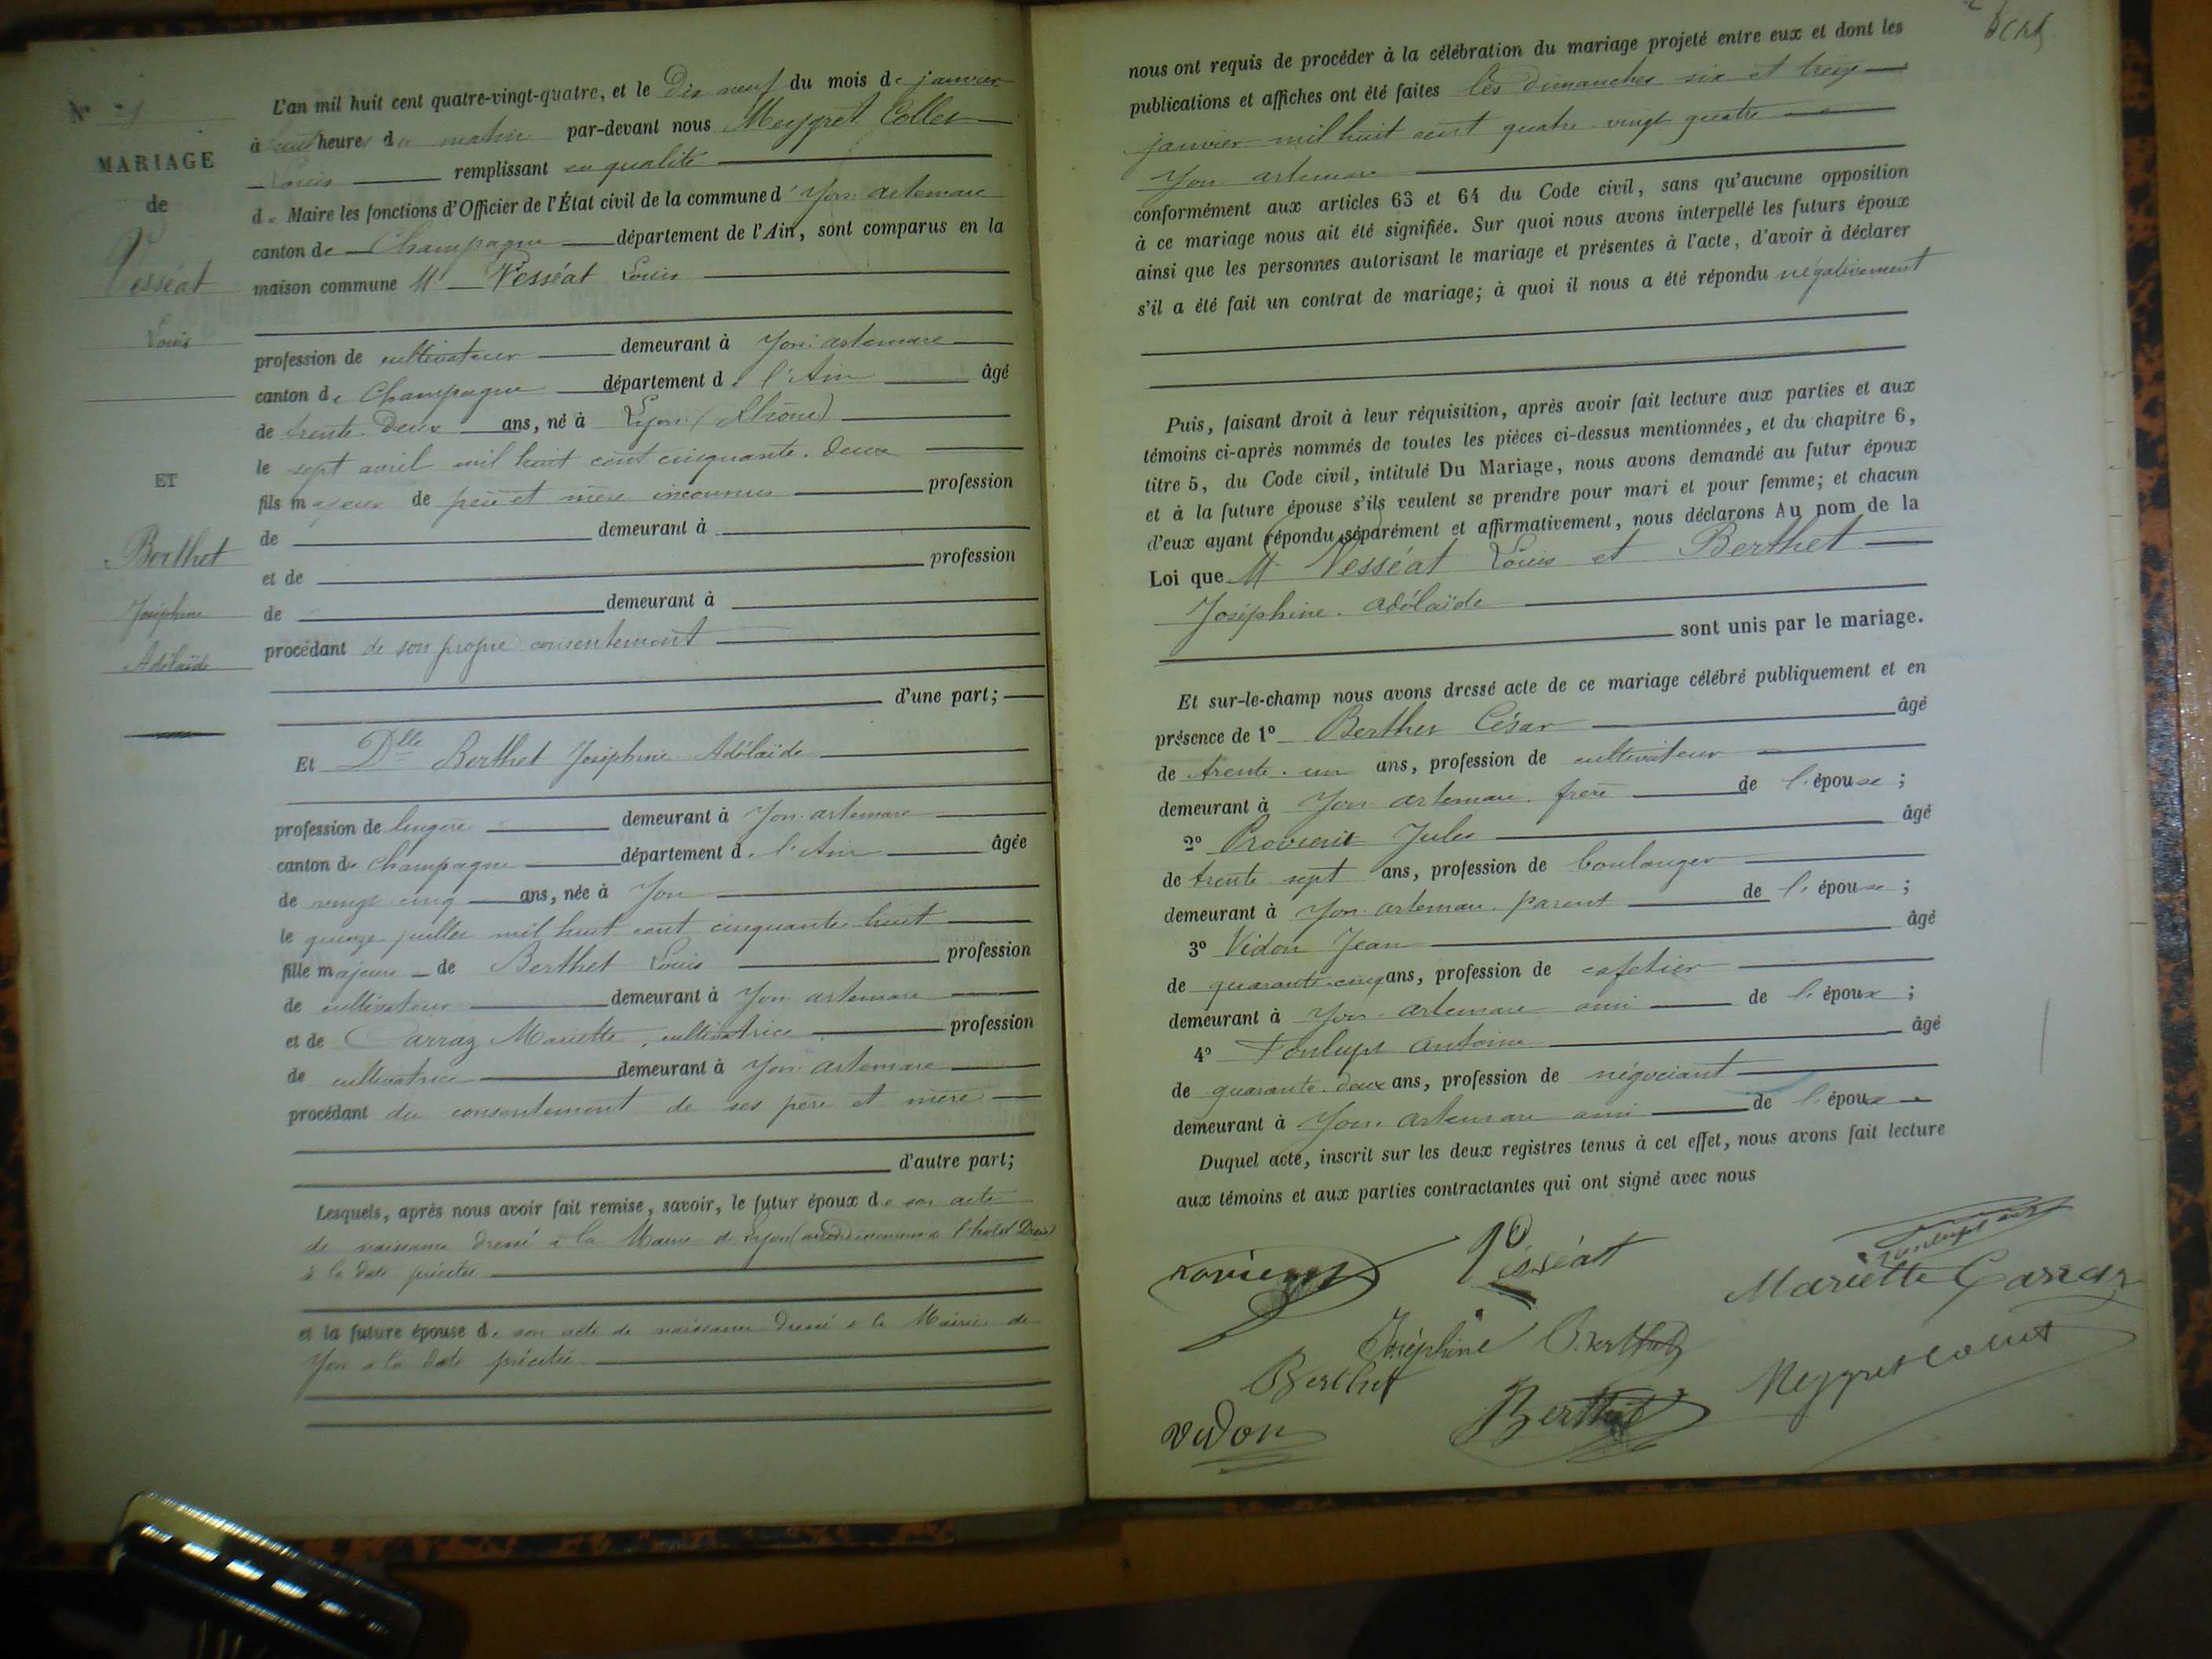 MARIAGE
de
Vesséat
Louis
ET
Berthet
Joséphine
Adélaïde
L'an mil huit cent quatre-vingt-quatre, et le Dix neuf du mois de janvier
à heures du matin par-devant nous Meygret Collet
Louis remplissant en qualité
de Maire les fonctions d'Officier de l'État civil de la commune d' Yon artemare
canton de Champagne département de l'Ain, sont comparus en la
maison commune Mr Vesséat Louis
profession de cultivateur demeurant à Yon artemare
canton de Champagne département de l'Ain âgé
de trente Deux ans, né à Lyon (Rhône)
le sept avril mil huit cent cinquante. Deux
fils majeur de père et mère inconnus profession
de demeurant à
et de profession
de demeurant à
procédant de son propre consentement
d'une part;
Et Dlle Berthet Joséphine Adélaïde
profession de lingère demeurant à Yon artemare
canton de Champagne département de l'Ain âgée
de vingt cinq ans, née à Yon
le quinze juillet mil huit cent cinquante huit
fille majeure de Berthet Louis profession
de cultivateur demeurant à Yon artemare
et de Carraz Mariette, cultivatrice profession
de cultivatrice demeurant à Yon artemare
procédant du consentement de ses père et mère
d'autre part;
Lesquels, après nous avoir fait remise, savoir, le futur époux de son acte
de naissance dressé à la Mairie de Lyon ( l'hôtel Dieu)
à la date précitée
et la future épouse de son acte de naissance dressé à la Mairie de
Yon à la date précitée
nous ont requis de procéder à la célébration du mariage projeté entre eux et dont les
publications et affiches ont été faites les dimanches six et treize
janvier mil huit cent quatre-vingt quatre
Yon artemare
conformément aux articles 63 et 64 du Code civil, sans qu'aucune opposition
à ce mariage nous ait été signifiée. Sur quoi nous avons interpellé les futurs époux
ainsi que les personnes autorisant le mariage et présentes à l'acte, d'avoir à déclarer
s'il a été fait un contrat de mariage; à quoi il nous a été répondu négativement
Puis, faisant droit à leur réquisition, après avoir fait lecture aux parties et aux
témoins ci-après nommés de toutes les pièces ci-dessus mentionnées, et du chapitre 6,
titre 5, du Code civil, intitulé Du Mariage, nous avons demandé au futur époux
et à la future épouse s'ils veulent se prendre pour mari et pour femme; et chacun
d'eux ayant répondu séparément et affirmativement, nous déclarons Au nom de la
Loi que Mr Vesséat Louis et Berthet
Joséphine. Adélaïde
sont unis par le mariage.
Et sur-le-champ nous avons dressé acte de ce mariage célébré publiquement et en
présence de 1° Berthet César âgé
de trente. un ans, profession de cultivateur
demeurant à Yon artemare. frère de l'épouse;
2° Jules âgé
de trente sept ans, profession de boulanger
demeurant à Yon artemare. parent de l'épouse;
3° Vidon Jean âgé
de quarante cinq ans, profession de cafetier
demeurant à Yon-artemare ami de l'époux;
4° Fonlupt antoine âgé
de quarante. deux ans, profession de négociant
demeurant à Yon. artemare ami de l'époux
Duquel acte, inscrit sur les deux registres tenus à cet effet, nous avons fait lecture
aux témoins et aux parties contractantes qui ont signé avec nous
Vesséat
Mariette Carraz
Joséphine Berthet
Berthet
Meygret Collet
Vidon
Berthet